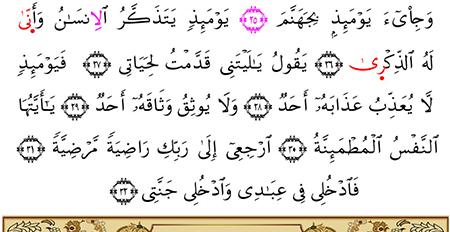 وَجِا۟ىٓءَ يَوْمَئِذٍۭ بِجَهَنَّمَ ﴿٢٥﴾ يَوْمَئِذٍ يَتَذَكَّرُ الْإِنسَٰنُ وَأَنَّىٰ
لَهُ الذِّكْرَىٰ ﴿٢٦﴾ يَقُولُ يَٰلَيْتَنِى قَدَّمْتُ لِحَيَاتِى ﴿٢٧﴾ فَيَوْمَئِذٍ
لَّا يُعَذِّبُ عَذَابَهُۥٓ أَحَدٌ ﴿٢٨﴾ وَلَا يُوثِقُ وَثَاقَهُۥٓ أَحَدٌ ﴿٢٩﴾ يَٰٓأَيَّتُهَا
النَّفْسُ الْمُطْمَئِنَّةُ ﴿٣٠﴾ ارْجِعِىٓ إِلَىٰ رَبِّكِ رَاضِيَةً مَّرْضِيَّةً ﴿٣١﴾
فَادْخُلِى فِى عِبَٰدِى وَادْخُلِى جَنَّتِى ﴿٣٢﴾